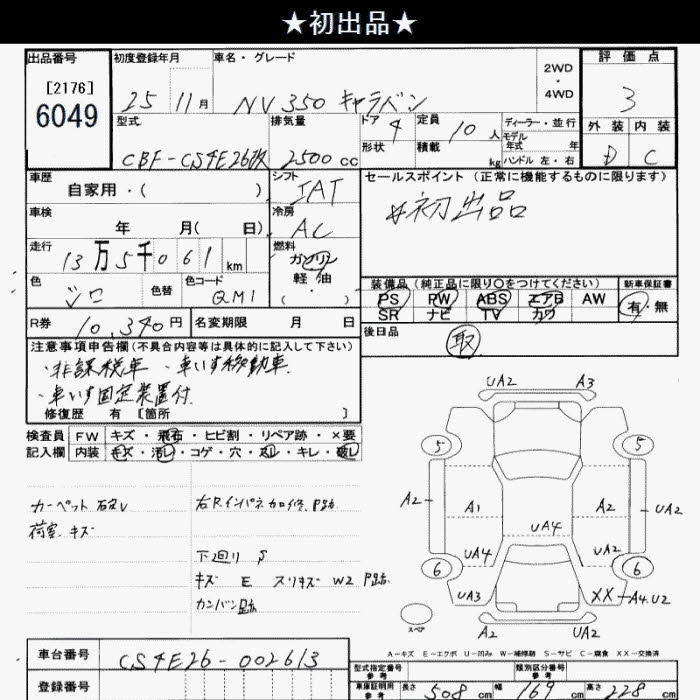 ★初出品★
出品番号
[2176]
6049
初度登録年月
25 11月
車名・グレード
NV350 キャラバン
2WD
・
4WD
評価点
3
外装 内装
D C
型式
CBF-CS4E26改
排気量
2500 cc
ドア 4
形状
定員 10 人
積載 kg
ディーラー・並行
モデル
年式 年
ハンドル 左・右
車歴
自家用・( )
シフト
IAT
車検
年 月( 日)
冷房
AC
走行
13万5千061km
燃料
ガソリン
軽・油
( ・ )
色
シロ
色替
色コード
QM1
R券 10,340円
名変期限 月 日
セールスポイント(正常に機能するものに限ります)
#初出品
装備品(純正品に限り○をつけてください)
PS PW ABS エアB AW
SR ナビ TV カワ
新車保証書
有・無
後日品
取
注意事項申告欄(不具合内容等は具体的に記入して下さい)
・非課税車 ・車いす移動車
・車いす固定装置付
修復歴 有 [箇所 ]
検査員 FW キズ・飛石・ヒビ割・リペア跡・×要
記入欄 内装 キズ・汚レ・コゲ・穴・スレ・キレ・破レ
カーペット
荷室 キズ
下廻り S
キズ E スリキズ W2 P跡
カンバン跡
UA2 A3
5 5
A2 A1 A2 UA2
UA4
UA4 UA2
6 6
UA3 XX A4.U2
スペア
A2 UA2
A-キズ E-エクボ U-凹み W-補修跡 S-サビ C-腐食 XX-交換済
車台番号 CS4E26-002613
登録番号
型式指定番号
参考
類別区分番号
参考
車庫証明用
参考
長さ 508 cm 幅 169 cm 高さ 228 cm